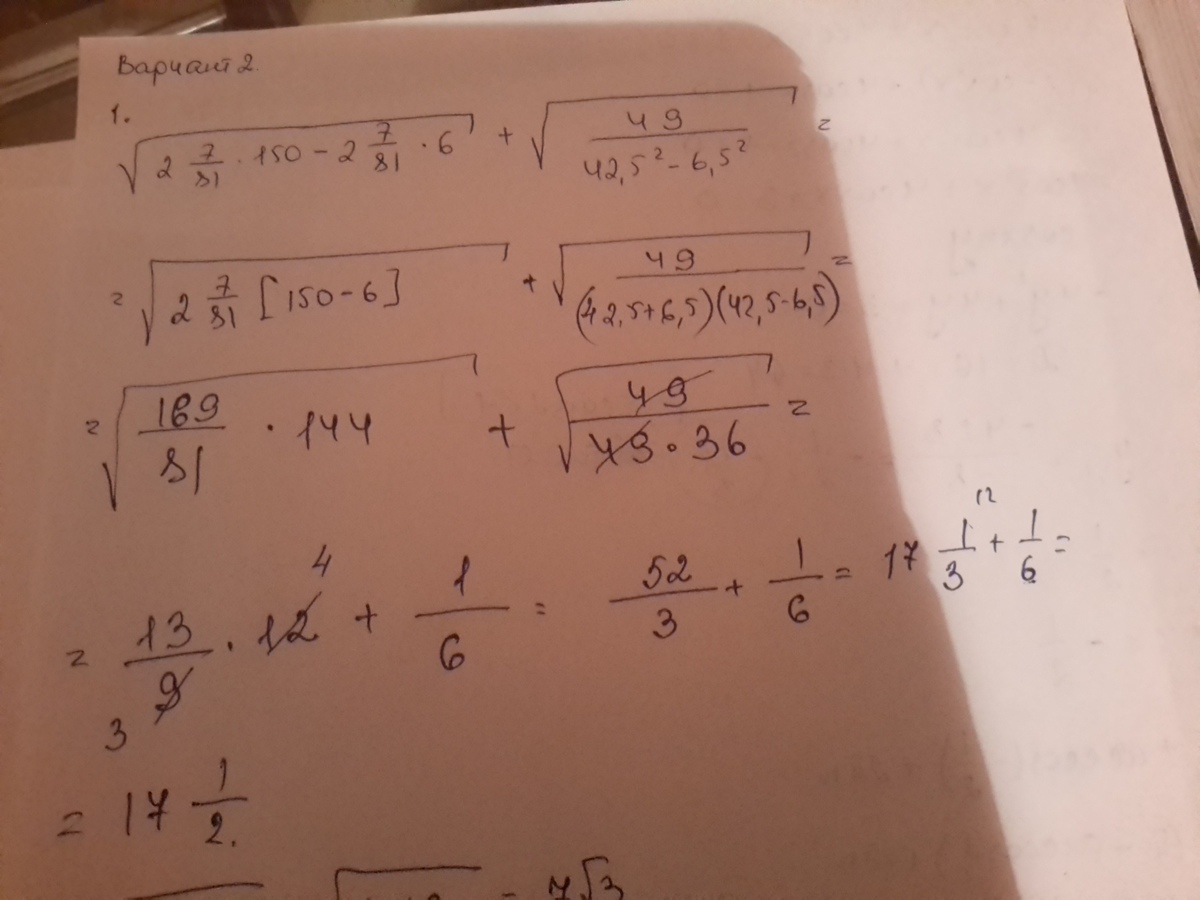 Вариант 2.
1.
√(2 7/81 · 150 − 2 7/81 · 6) + √(49/(42,5² − 6,5²)) =
= √(2 7/81 [150 − 6]) + √(49/((42,5+6,5)(42,5−6,5))) =
= √(169/81 · 144) + √(49/(49 · 36)) =
= 13/9 3 · 12 4 + 1/6 = 52/3 + 1/6 = 17 1/3 12 + 1/6 =
= 17 1/2.
= 7√3